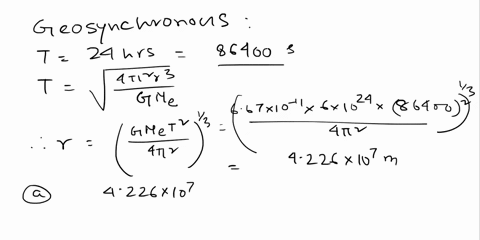 Geosynchronous :
T = 24 hrs = 86400 s
T = √(4π²r³ / GMe)
∴ r = (GMeT² / 4π²)^1/3 = (6.67×10^-11 × 6×10^24 × (86400)² / 4π²)^1/3
= 4.226×10^7 m
(a) 4.226×10^7